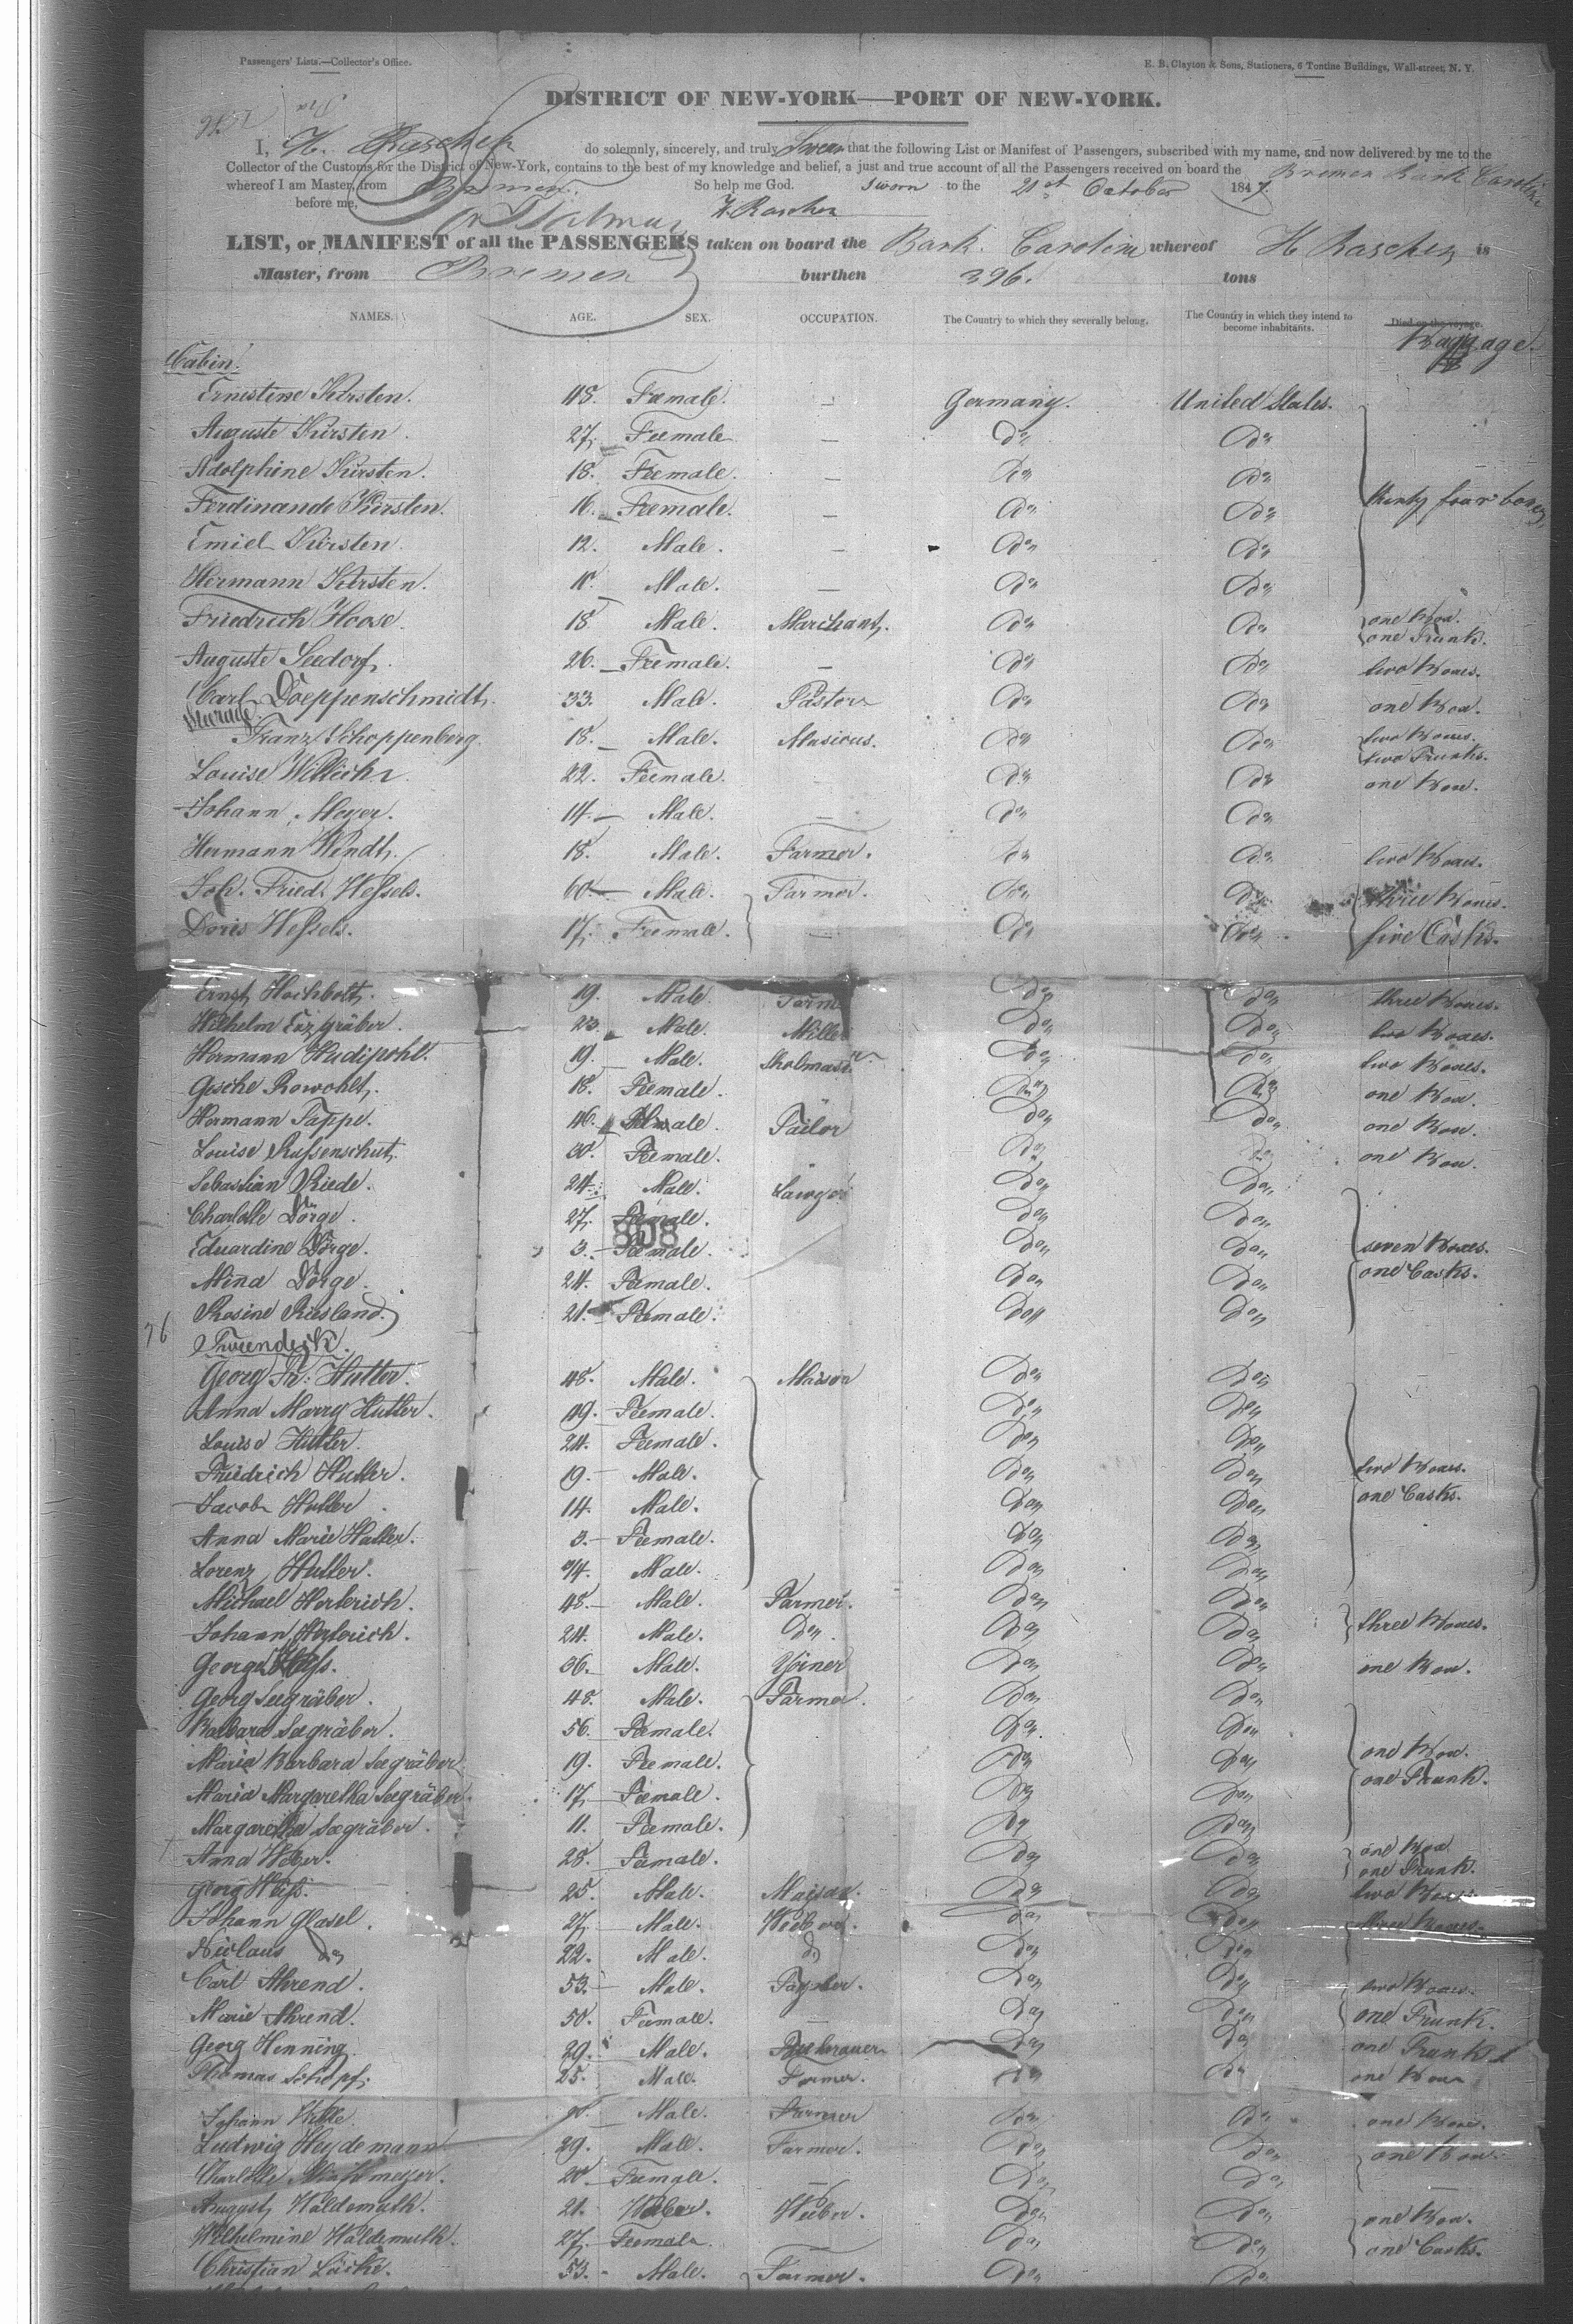 Passengers' Lists.—Collector's Office.
E. B. Clayton & Sons, Stationers, 6 Tontine Buildings, Wall-street, N. Y.
DISTRICT OF NEW-YORK—PORT OF NEW-YORK.
I, H. Raschen do solemnly, sincerely, and truly Swear that the following List or Manifest of Passengers, subscribed with my name, and now delivered by me to the
Collector of the Customs for the District of New-York, contains to the best of my knowledge and belief, a just and true account of all the Passengers received on board the Bremen Bark Caroline
whereof I am Master, from Bremen. So help me God. Sworn to the 21st October 1847.
before me, H. Raschen
LIST, or MANIFEST of all the PASSENGERS taken on board the Bark Caroline whereof H Raschen is
Master, from Bremen burthen 396. tons
NAMES. AGE. SEX. OCCUPATION. The Country to which they severally belong. The Country in which they intend to become inhabitants. Died on the voyage.
Baggage.
Cabin.
Ernestine Kirsten. 48. Feemale. — Germany. United States.
Auguste Kirsten. 27. Feemale — do do
Adolphine Kirsten. 18. Feemale. — do do
Ferdinande Kirsten. 16. Feemale. — do do thirty four boxes
Emiel Kirsten. 12. Male. — do do
Hermann Kirsten. 10. Male. — do do
Friedrich Hoose. 18 Male. Marchant. do do one Box. one Trunk.
Auguste Seedorf. 26. Feemale. — do do two Boxes.
Carl Doeppenschmidt. 33. Male. Pastor do do one Box.
Steerage
Franz Schoppenberg. 18. Male. Musicus. do do two Boxes. two Trunks.
Louise Willich 22. Feemale. do do one Box.
Johann Meyer. 14. Male. — do do
Hermann Wendt. 18. Male. Farmer. do do two Boxes.
Joh. Fried. Hessels. 60 Male. Farmer. do do three Boxes.
Doris Hessels. 17. Feemale. — do do five Casks.
Ernst Hochbolt. 19. Male. Farm do do three Boxes.
Wilhelm Erzgräber. 23. Male. Miller do do two Boxes.
Hermann Hudipohl. 19. Male. do do two Boxes.
Gesche Rowohlt. 18. Feemale. do do one Box.
Hermann Tappe. 46. Male. Tailor do do one Box.
Louise Russenschut. 30. Feemale. do do one Box.
Sebastian Riede. 24. Male. Lawyer do do
Charlotte Dörge. 27. Feemale. do do
808
Eduardine Dörge. 3. Feemale. do do seven Boxes.
Mina Dörge. 24. Feemale. do do one Casks.
Rosine Riesland. 21. Feemale. do do
Tweendeck.
Georg Fr. Hutter. 48. Male. Maison do do
Anna Marry Hutter. 49. Feemale. do do
Louise Hutter. 24. Feemale. do do
Friedrich Hutter. 19. Male. do do two Boxes.
Jacob Hutter 14. Male. do do one Casks.
Anna Marie Hutter. 3. Feemale. do do
Lorenz Hutter. Male. do do
Michael Herlerich. 48. Male. Farmer. do do
Johann Herlerich. 24. Male. do do do three Boxes.
Georg Heß. 36. Male. Yoiner do do one Box.
Georg Seegräber. 48. Male. Farmer. do do
Barbara Seegräber. 56. Feemale. do do
Maria Barbara Seegräber 19. Feemale. do do one Box.
Maria Margaretha Seegräber. 17. Feemale. do do one Trunk.
Margaretha Seegräber. 11. Feemale. do do
Anna 28. Feemale. do do one Box one Trunk.
Georg Heiß. 25. Male. do do two Boxes
Johann Glasel. 27. Male. Weeber. do do three Boxes.
Nicolaus do 22. Male. do do do
Carl Ahrend. 53. Male. do do two Boxes.
Marie Ahrend. 50. Feemale. — do do one Trunk.
Georg Henning. 29. Male. Beebrauer do do one Trunk
Thomas Schöpf. 25. Male. Farmer. do do one Box
Johann Male. Farmer do do one Box.
Ludwig Heydemann 29. Male. Farmer. do do one Box.
Charlotte 20 Feemale. — do do
August Waldemuth. 21. Weeber. do do one Box.
Wilhelmine Waldemuth. 27. Feemale. do do one Casks.
Christian Lücke. 53. Male. Farmer. do do